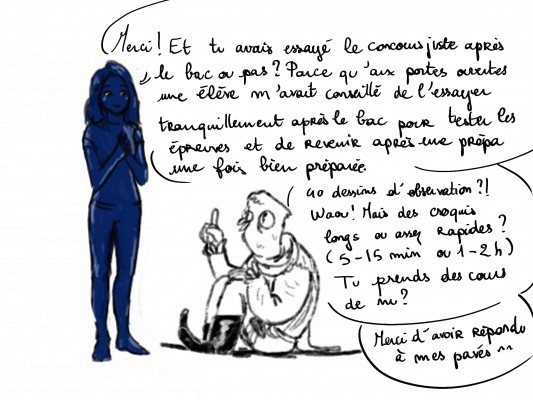 Merci! Et tu avais essayé le concours juste après
le bac ou pas? Parce qu'aux portes ouvertes
une élève m'avait conseillé de l'essayer
tranquillement après le bac pour tester les
épreuves et de revenir après une prépa
une fois bien préparée.
40 dessins d'observation?!
Waou! Mais des croquis
longs ou assez rapides?
(5-15 min ou 1-2h)
Tu prends des cours
de nu?
Merci d'avoir répondu
à mes pavés ^^